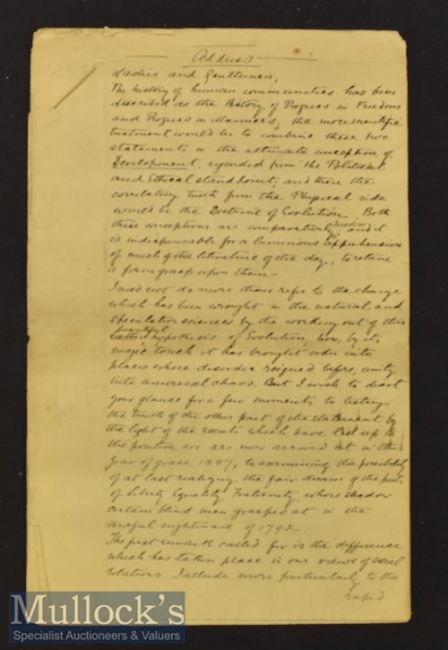 Address
Ladies and Gentlemen,
The history of human communities has been
described as the History of Progress in Freedom
and Progress in Manners, the more scientific
treatment would be to combine these two
statements in the ultimate conception of
Development, regarded from the Political
and Ethical standpoints, and there the
correlating truth from the Physical side
would be the Doctrine of Evolution. Both
these conceptions are comparatively modern, and it
is indispensable for a luminous apprehension
of much of the literature of the day, to retain
a firm grasp upon them -
I need not do more than refer to the change
which has been wrought in the natural and
speculative sciences by the working out of this
beautiful hypothesis of Evolution, how, by its
magic touch it has brought order into
places where disorder reigned before, unity
into universal chaos. But I wish to direct
your glance for a few moments to testing
the truth of the other part of the statement by
the light of the events which have led up to
the position we are now arrived at in this
year of grace 1887, to examining the possibility
of at last realizing the fair dream of the poets
of Liberty Equality Fraternity, whose shadow
certain blind men grasped at in the
awful nightmare of 1792 -
The first remark called for is the difference
which has taken place in our views of social
relations. I allude more particularly to the
rapid
Mullock's
Specialist Auctioneers & Valuers